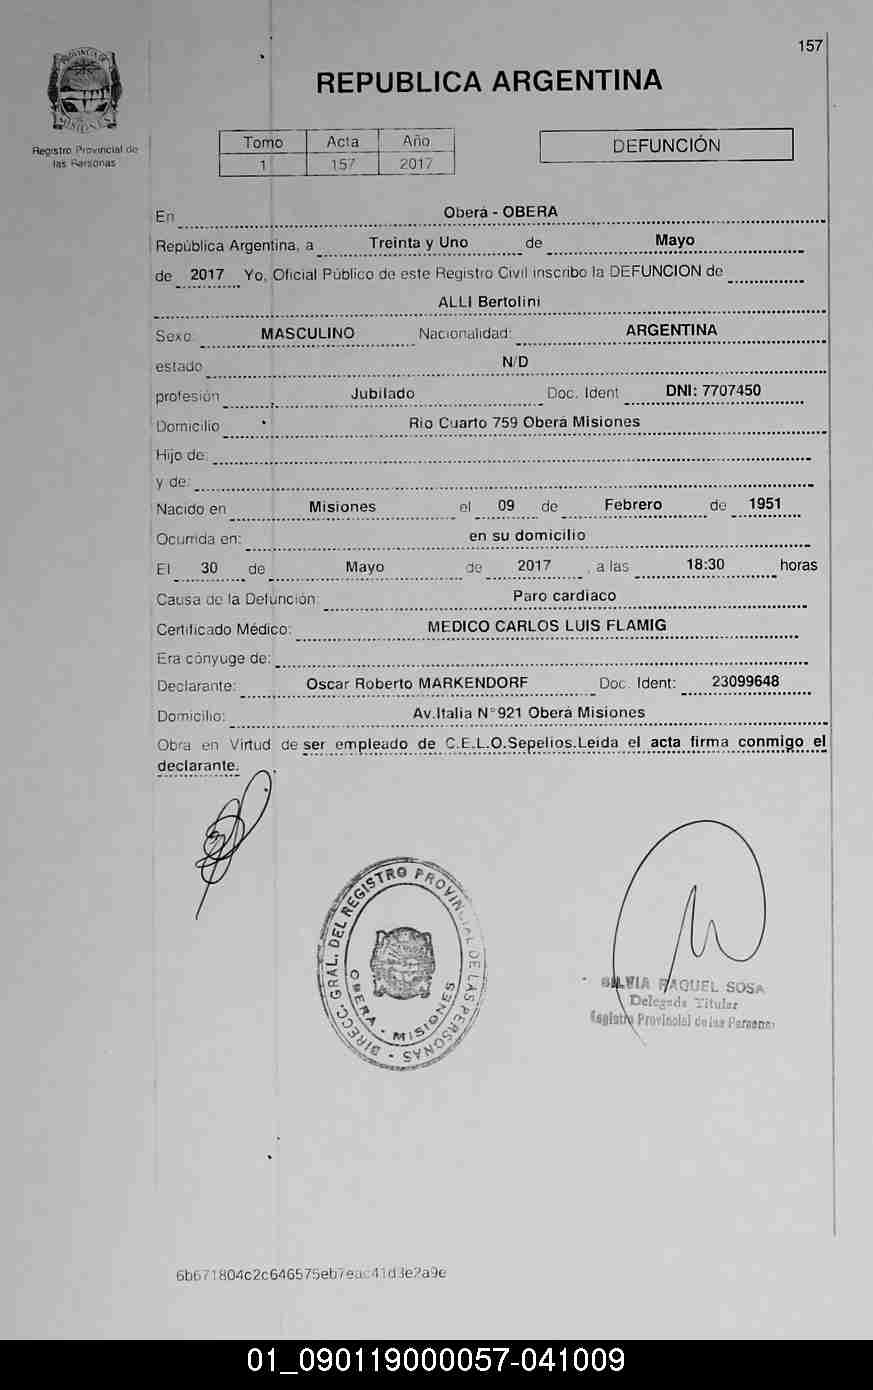 157
PROVINCIA DE
MISIONES
Registro Provincial de
las Personas
REPUBLICA ARGENTINA
Tomo Acta Año
1 157 2017
DEFUNCIÓN
En Oberá - OBERA
República Argentina, a Treinta y Uno de Mayo
de 2017 Yo, Oficial Público de este Registro Civil inscribo la DEFUNCION de
ALLI Bertolini
Sexo: MASCULINO Nacionalidad: ARGENTINA
estado N/D
profesión Jubilado Doc. Ident DNI: 7707450
Domicilio Rio Cuarto 759 Oberá Misiones
Hijo de:
y de:
Nacido en Misiones el 09 de Febrero de 1951
Ocurrida en: en su domicilio
El 30 de Mayo de 2017 , a las 18:30 horas
Causa de la Defunción: Paro cardiaco
Certificado Médico: MEDICO CARLOS LUIS FLAMIG
Era cónyuge de:
Declarante: Oscar Roberto MARKENDORF Doc. Ident: 23099648
Domicilio: Av.Italia N°921 Oberá Misiones
Obra en Virtud de ser empleado de C.E.L.O.Sepelios.Leida el acta firma conmigo el
declarante.
DIRECC. GRAL. DEL REGISTRO PROVINCIAL DE LAS PERSONAS
OBERA - MISIONES
SILVIA RAQUEL SOSA
Delegada Titular
Registro Provincial de las Personas
6b671804c2c646575eb7eac41d3e2a9e
01_090119000057-041009